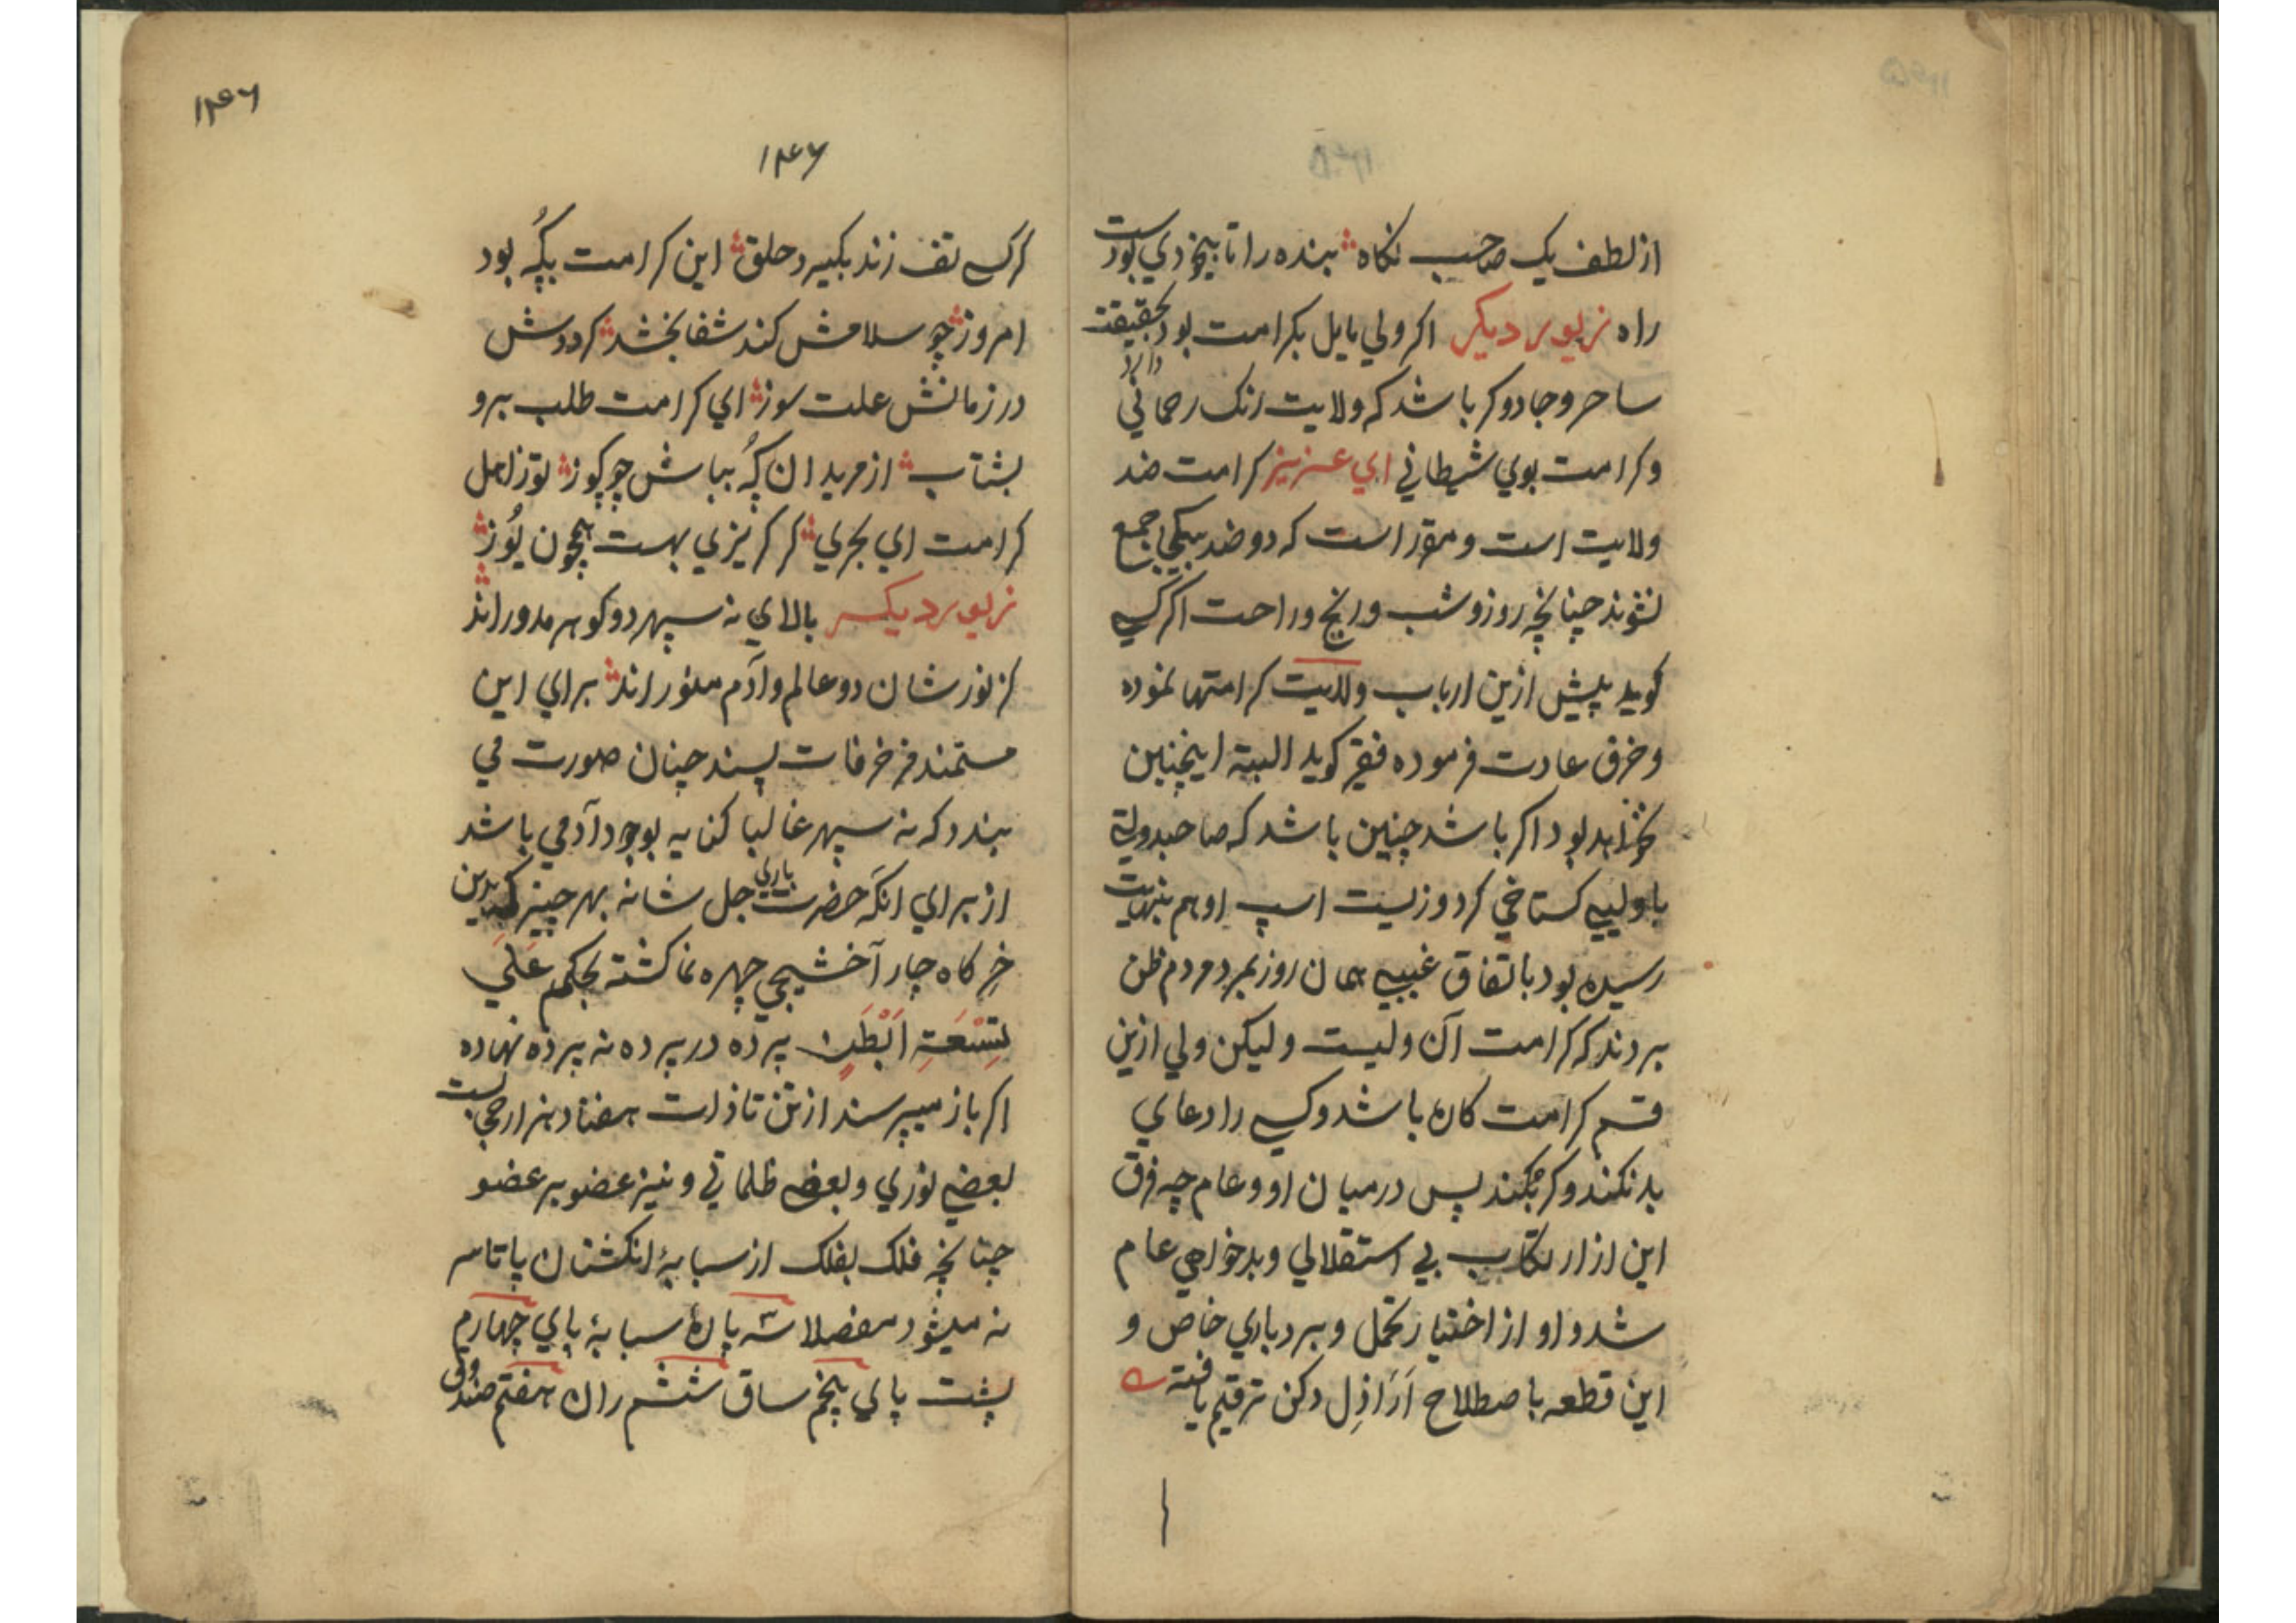 از لطف یک صاحب نکاه بنده را تا بیخودی بودست
راه زیور دیکر اکر ولی مایل بکرامت بود بحقیقت
ساحر و جادوکر باشد که ولایت رنک رحمانی دارد
و کرامت بوی شیطانی ای عزیز کرامت ضد
ولایت است و مقرر است که دو ضد بیکجا جمع
نشوند چنانچه روز و شب و رنج و راحت اکر کسی
کوید پیش ازین ارباب ولایت کرامتها نموده
و خرق عادت فرموده فقیر کوید البته اینچنین
نخواهد بود اکر باشد چنین باشد که صاحبدولتی
با ولیی کستاخی کرد و زیست اسپ او هم بنهایت
رسیده بود باتفاق غیبی همان روز بمرد مردم ظن
بردند که کرامت آن ولیست ولیکن ولی ازین
قسم کرامت کاره باشد و کسی را دعای
بد نکند و کر بکند پس درمیان او و عام چه فرق
این از ارتکاب بی استقلالی و بدخواهی عام
شد و او از اختیار تحمل و بردباری خاص و
این قطعه باصطلاح اَرَاذِل دکن ترقیم یافته
۱۴۶
۱۴۶
کر کسی تف زند بکیرد حلق این کرامت بکُه بود
امروز چو سلامش کند شفا بخشد کردوش
در زمانش علت سوز ای کرامت طلب برو
بشتاب از مریدان کُه بباش چو کوز توز اهل
کرامت ای بحری کر کریزی بهست همچون یُوز
زیور دیکر بالای نه سپهر دو کوهر مدور اند
کز نور شان دو عالم و آدم منور اند برای این
مستمند مزخرفات پسند چنان صورت می
بندد که نه سپهر غالبا کنایه بوجود آدمی باشد
از برای انکه حضرت باری جل شانه بهر چیز که بدین
خرکاه چار آخشیجی چهره نما کشته بحکم عَلَی
تِسْعَتِ اَبْطَنٍ پرده در پرده نه پرده نهاده
اکر باز میپرسند از تن تا ذات هفتاد هزار حجابست
بعضی نوری و بعضی ظلمانی و نیز عضو بر عضو
چنانچه فلک بفلک از سبابهٔ انکشتان پا تا سر
نه میشود مفصلا سه پارهٔ سبابهٔ پای چهارم
پشت پای پنجم ساق ششم ران هفتم صندوق